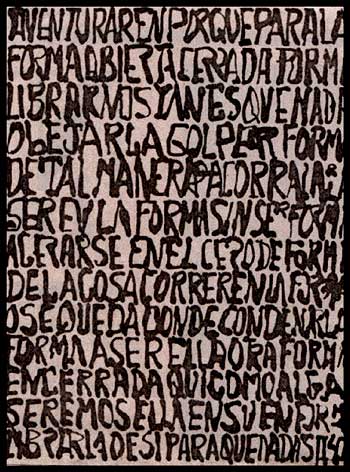 AVENTURAR EN PORQUE PARA LA
FORMA ABIERTA CERRADA FORM
LIBRARNOS TAN ES QUE NAD
O DEJAR LA GOLPEAR FORM
DE TAL MANERA ACORRALA
SER EN LA FORMA SIN SER FORM
ACERARSE EN EL CERO DE FORM
DE LA COSA CORRER EN LA FOR
OSE QUEDA DONDE CONDENAR LA
FORMA A SER ELLA ORA FORM
ENCERRADA QUI COMO ALGA
SEREMOS ELLA EN SU EN
PARLA DE SI PARA QUE NADA